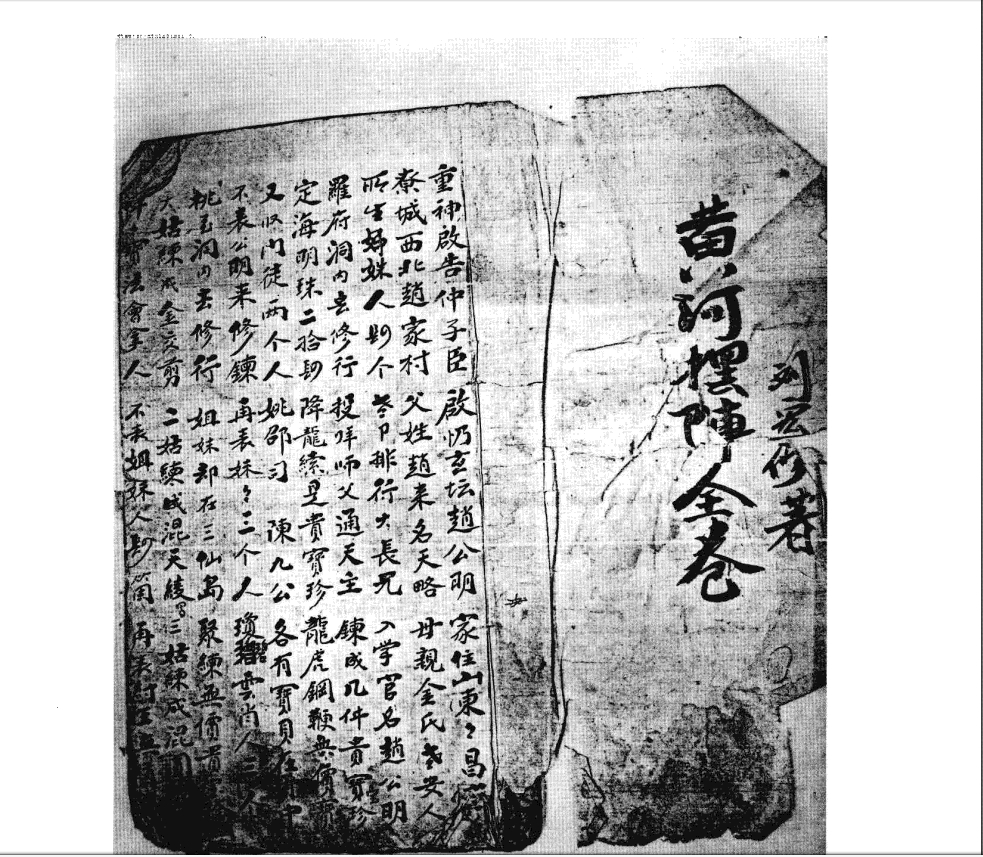 黄河摆陣全卷
刘宏修著
重神啟告仲子臣 啟仍玄坛趙公明 家住山東々昌
尞城西北趙家村 父姓趙来名天略 母親金氏老安人
所生姊妹人四个 老卩排行大長兄 入学官名趙公明
羅府洞内去修行 投拜师父通天主 鍊成几件貴寳珍
定海明珠二拾四 降龍索是貴寳珍 龍虎鋼鞭無價
又収门徒两个人 姚邵司 陳九公 各有寳貝在
不表公明来修鍊 再表妹々三个人 瓊碧雲肖人
桃毛洞内去修行 姐妹却在三仙島 聚練無價貴
大姑練成金交剪 二姑練成混天綾 三姑練成混
寳法會全人 不表姐妹人四个 再表